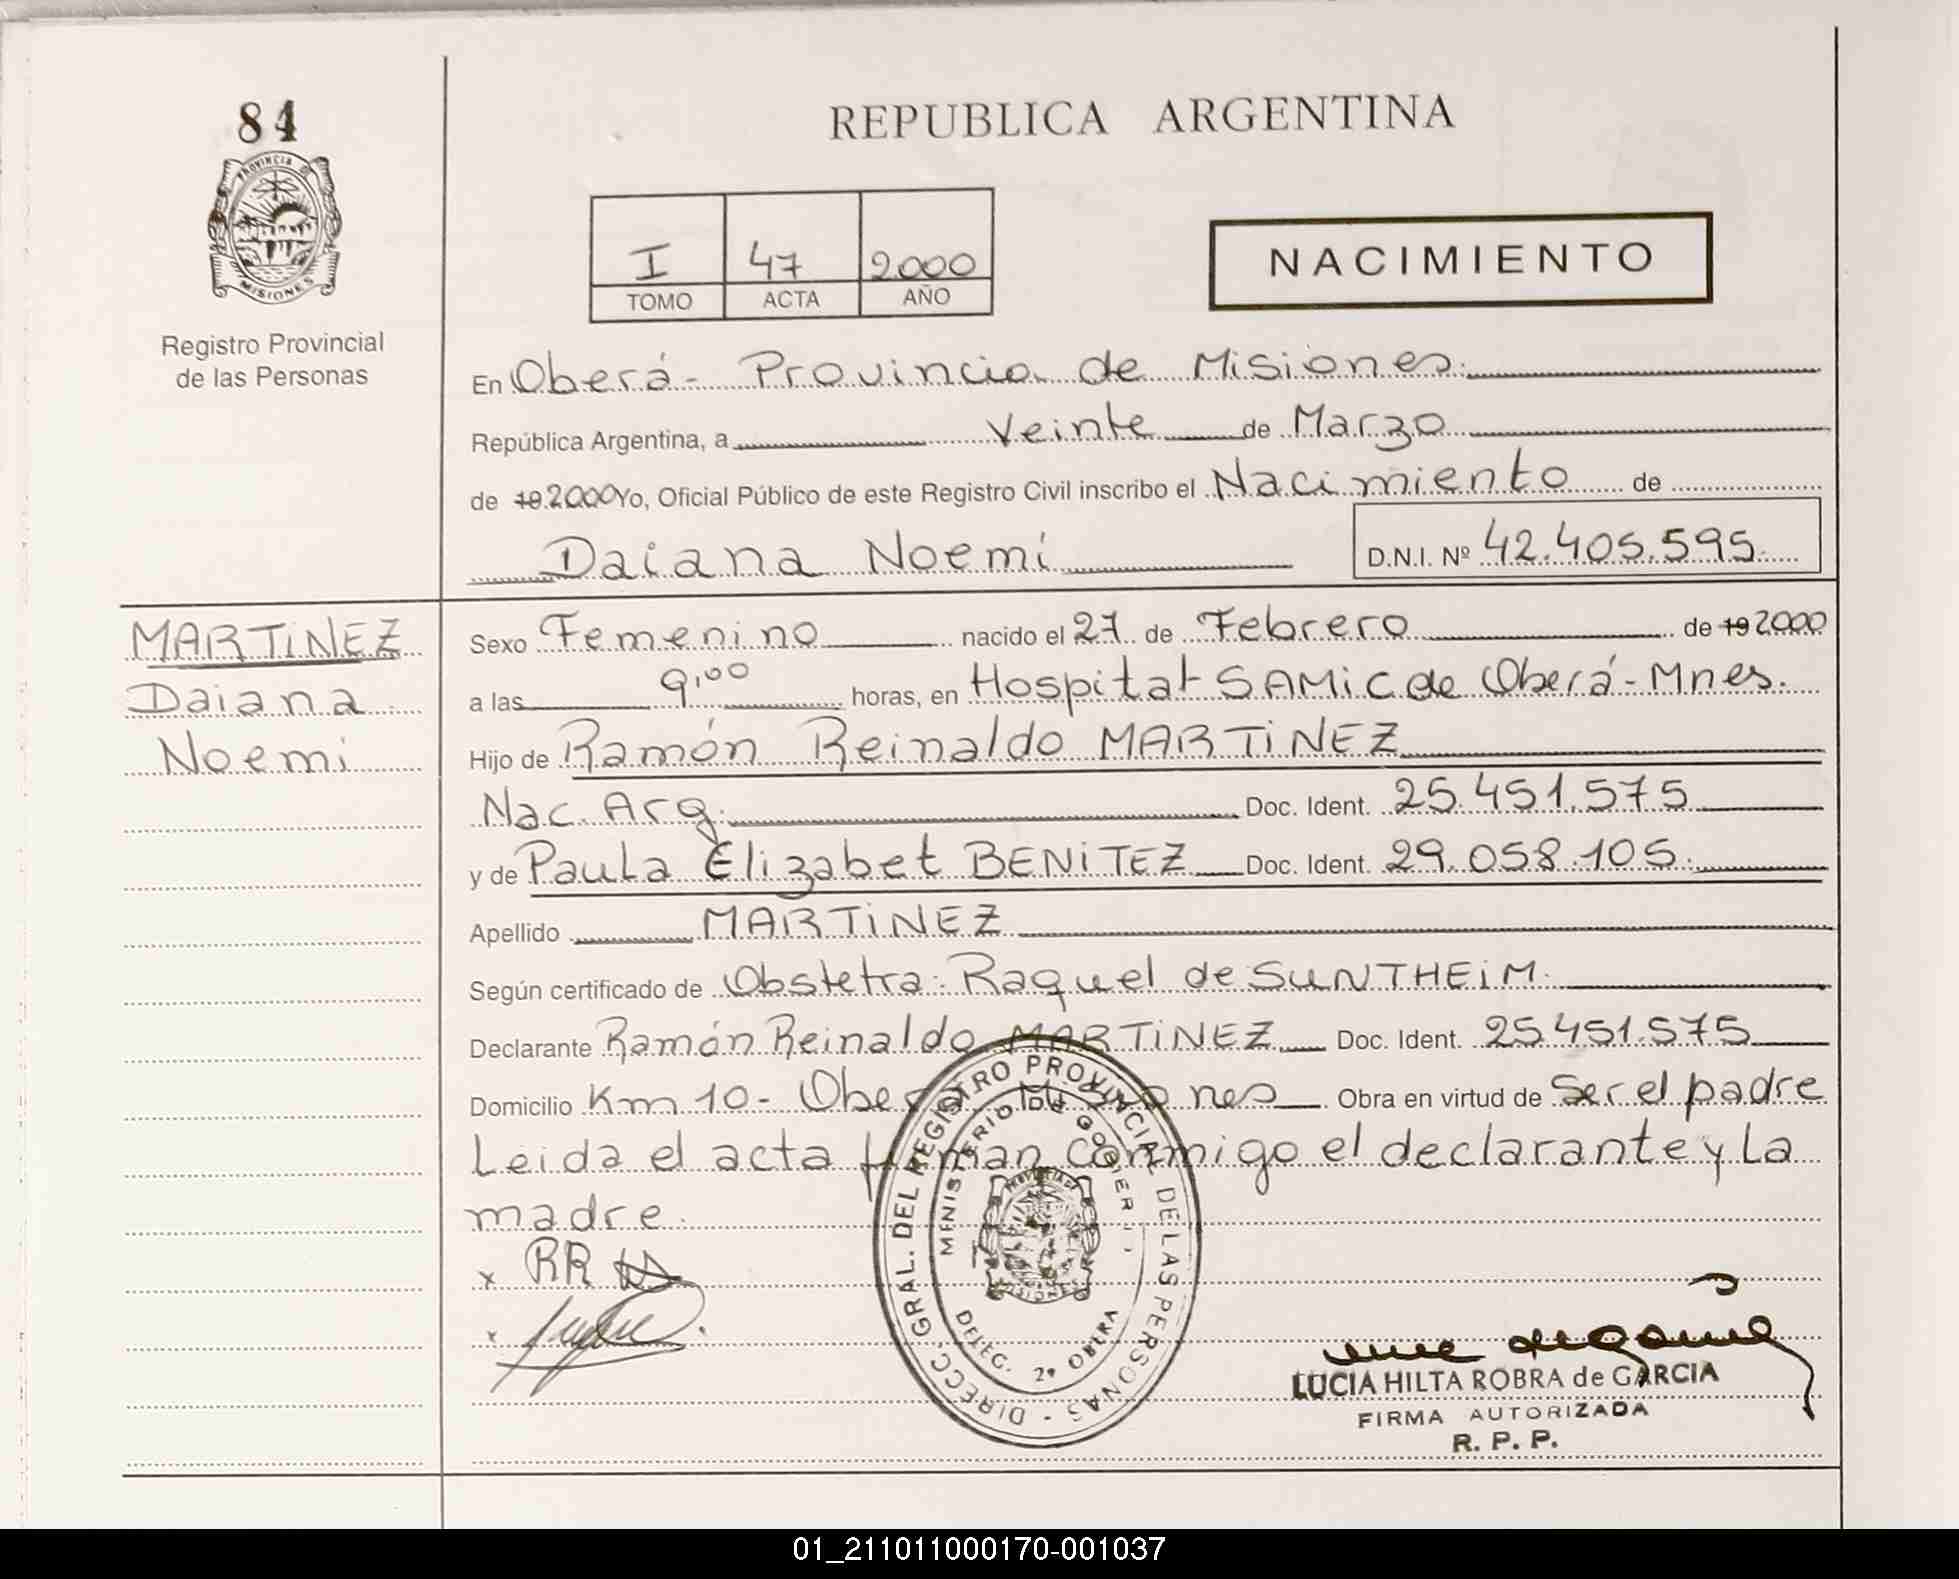 84
PROVINCIA DE
MISIONES
Registro Provincial
de las Personas
REPUBLICA ARGENTINA
I 47 2000
TOMO ACTA AÑO
NACIMIENTO
En Oberá - Provincia de Misiones.
República Argentina, a Veinte de Marzo
de 19 2000 Yo, Oficial Público de este Registro Civil inscribo el Nacimiento de
Daiana Noemí
D.N.I. Nº 42.405.595.
MARTiNEZ
Daiana
Noemi
Sexo Femenino nacido el 27 de Febrero de 19 2000
a las 9,00 horas, en Hospital SAMiC de Oberá - Mnes.
Hijo de Ramón Reinaldo MARTiNEZ
Nac. Arg. Doc. Ident. 25.451.575
y de Paula Elizabet BENiTEZ Doc. Ident. 29.058.105.
Apellido MARTiNEZ
Según certificado de Obstetra: Raquel de SUNTHEiM.
Declarante Ramón Reinaldo MARTiNEZ Doc. Ident. 25.451.575
Domicilio Km 10 - Oberá Misiones Obra en virtud de Ser el padre
Leida el acta firman conmigo el declarante y La
madre.
x RR
x
DIRECC. GRAL. DEL REGISTRO PROVINCIAL DE LAS PERSONAS -
MINISTERIO DE GOBIERNO
MISIONES
DELEG. 2ª OBERA
LUCIA HILTA ROBRA de GARCIA
FIRMA AUTORIZADA
R. P. P.
01_211011000170-001037